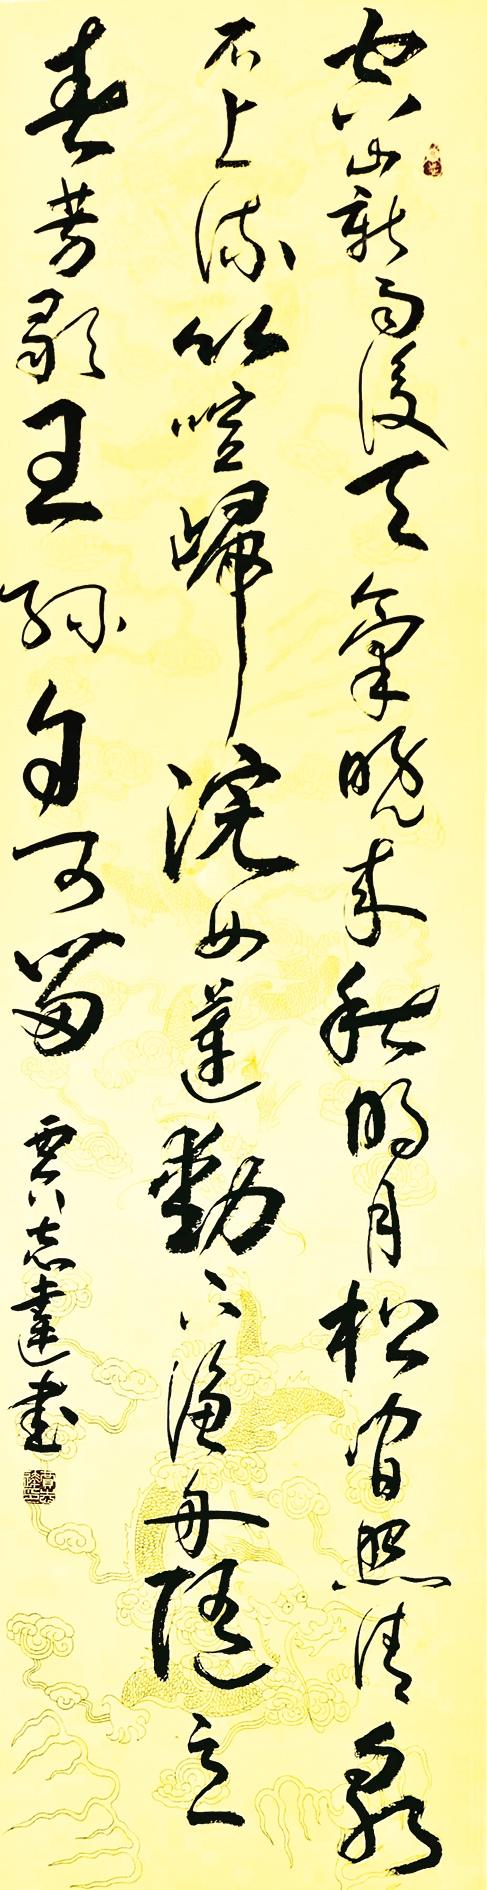 空山新雨後天氣晚來秋明月松間照清泉
石上流竹喧歸浣女蓮動下漁舟隨意
春芳歇王孫自可留 賈志達書